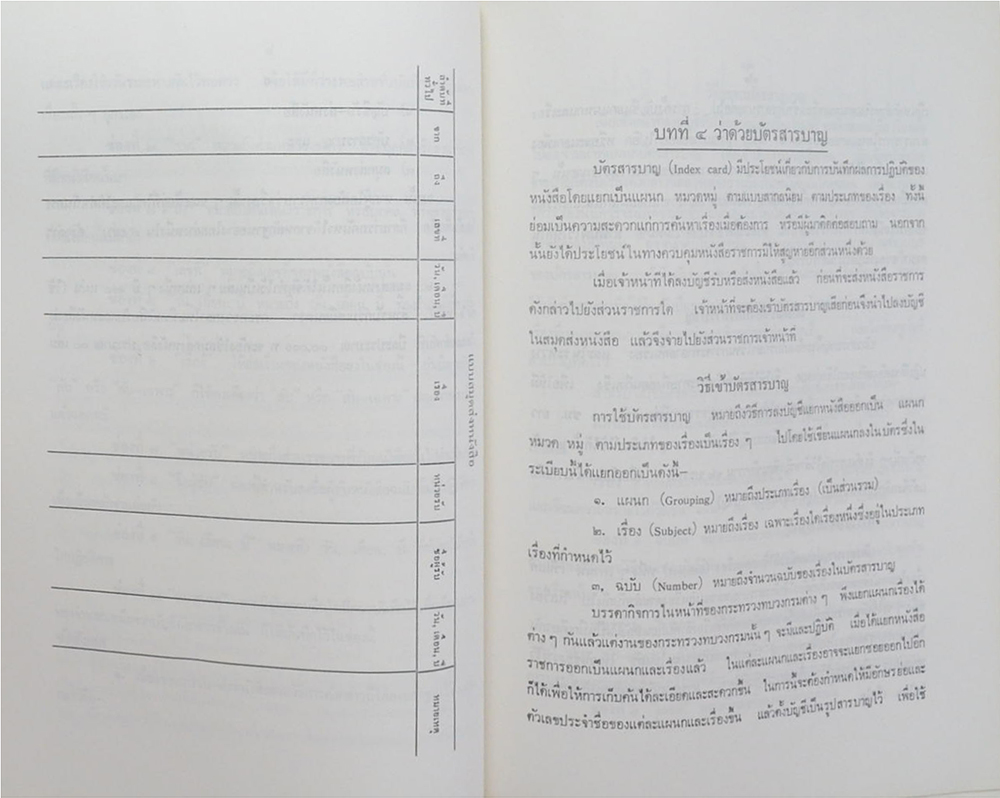 แบบสมุดส่งหนังสือ
ลำดับที่ทั่วไป
จาก
ถึง
เลขที่
วัน, เดือน, ปี
เรื่อง
หน่วยรับ
ชื่อผู้รับ
วัน, เดือน, ปี
หมายเหตุ
บทที่ ๔ ว่าด้วยบัตรสารบาญ
บัตรสารบาญ (Index card) มีประโยชน์เกี่ยวกับการบันทึกผลการปฏิบัติของ
หนังสือโดยแยกเป็นแผนก หมวดหมู่ ตามแบบสากลนิยม ตามประเภทของเรื่อง ทั้งนี้
ย่อมเป็นความสะดวกแก่การค้นหาเรื่องเมื่อต้องการ หรือมีผู้มาติดต่อสอบถาม นอกจาก
นั้นยังได้ประโยชน์ในทางควบคุมหนังสือราชการมิให้สูญหายอีกส่วนหนึ่งด้วย
เมื่อเจ้าหน้าที่ได้ลงบัญชีรับหรือส่งหนังสือแล้ว ก่อนที่จะส่งหนังสือราชการ
ดังกล่าวไปยังส่วนราชการใด เจ้าหน้าที่จะต้องเข้าบัตรสารบาญเสียก่อนจึงนำไปลงบัญชี
ในสมุดส่งหนังสือ แล้วจึงจ่ายไปยังส่วนราชการเจ้าหน้าที่
วิธีเข้าบัตรสารบาญ
การใช้บัตรสารบาญ หมายถึงวิธีการลงบัญชีแยกหนังสือออกเป็น แผนก
หมวด หมู่ ตามประเภทของเรื่องเป็นเรื่อง ๆ ไปโดยใช้เขียนแผนกลงในบัตรซึ่งใน
ระเบียบนี้ได้แยกออกเป็นดังนี้–
๑. แผนก (Grouping) หมายถึงประเภทเรื่อง (เป็นส่วนรวม)
๒. เรื่อง (Subject) หมายถึงเรื่อง เฉพาะเรื่องใดเรื่องหนึ่งซึ่งอยู่ในประเภท
เรื่องที่กำหนดไว้
๓. ฉบับ (Number) หมายถึงจำนวนฉบับของเรื่องในบัตรสารบาญ
บรรดากิจการในหน้าที่ของกระทรวงทบวงกรมต่าง ๆ พึงแยกแผนกเรื่องได้
ต่าง ๆ กันแล้วแต่งานของกระทรวงทบวงกรมนั้น ๆ จะมีและปฏิบัติ เมื่อได้แยกหนังสือ
ราชการออกเป็นแผนกและเรื่องแล้ว ในแต่ละแผนกและเรื่องอาจจะแยกซอยออกไปอีก
ก็ได้เพื่อให้การเก็บค้นได้ละเอียดและสะดวกขึ้น ในการนี้จะต้องกำหนดให้มีอักษรย่อและ
ตัวเลขประจำชื่อของแต่ละแผนกและเรื่องขึ้น แล้วตั้งบัญชีเป็นรูปสารบาญไว้ เพื่อใช้